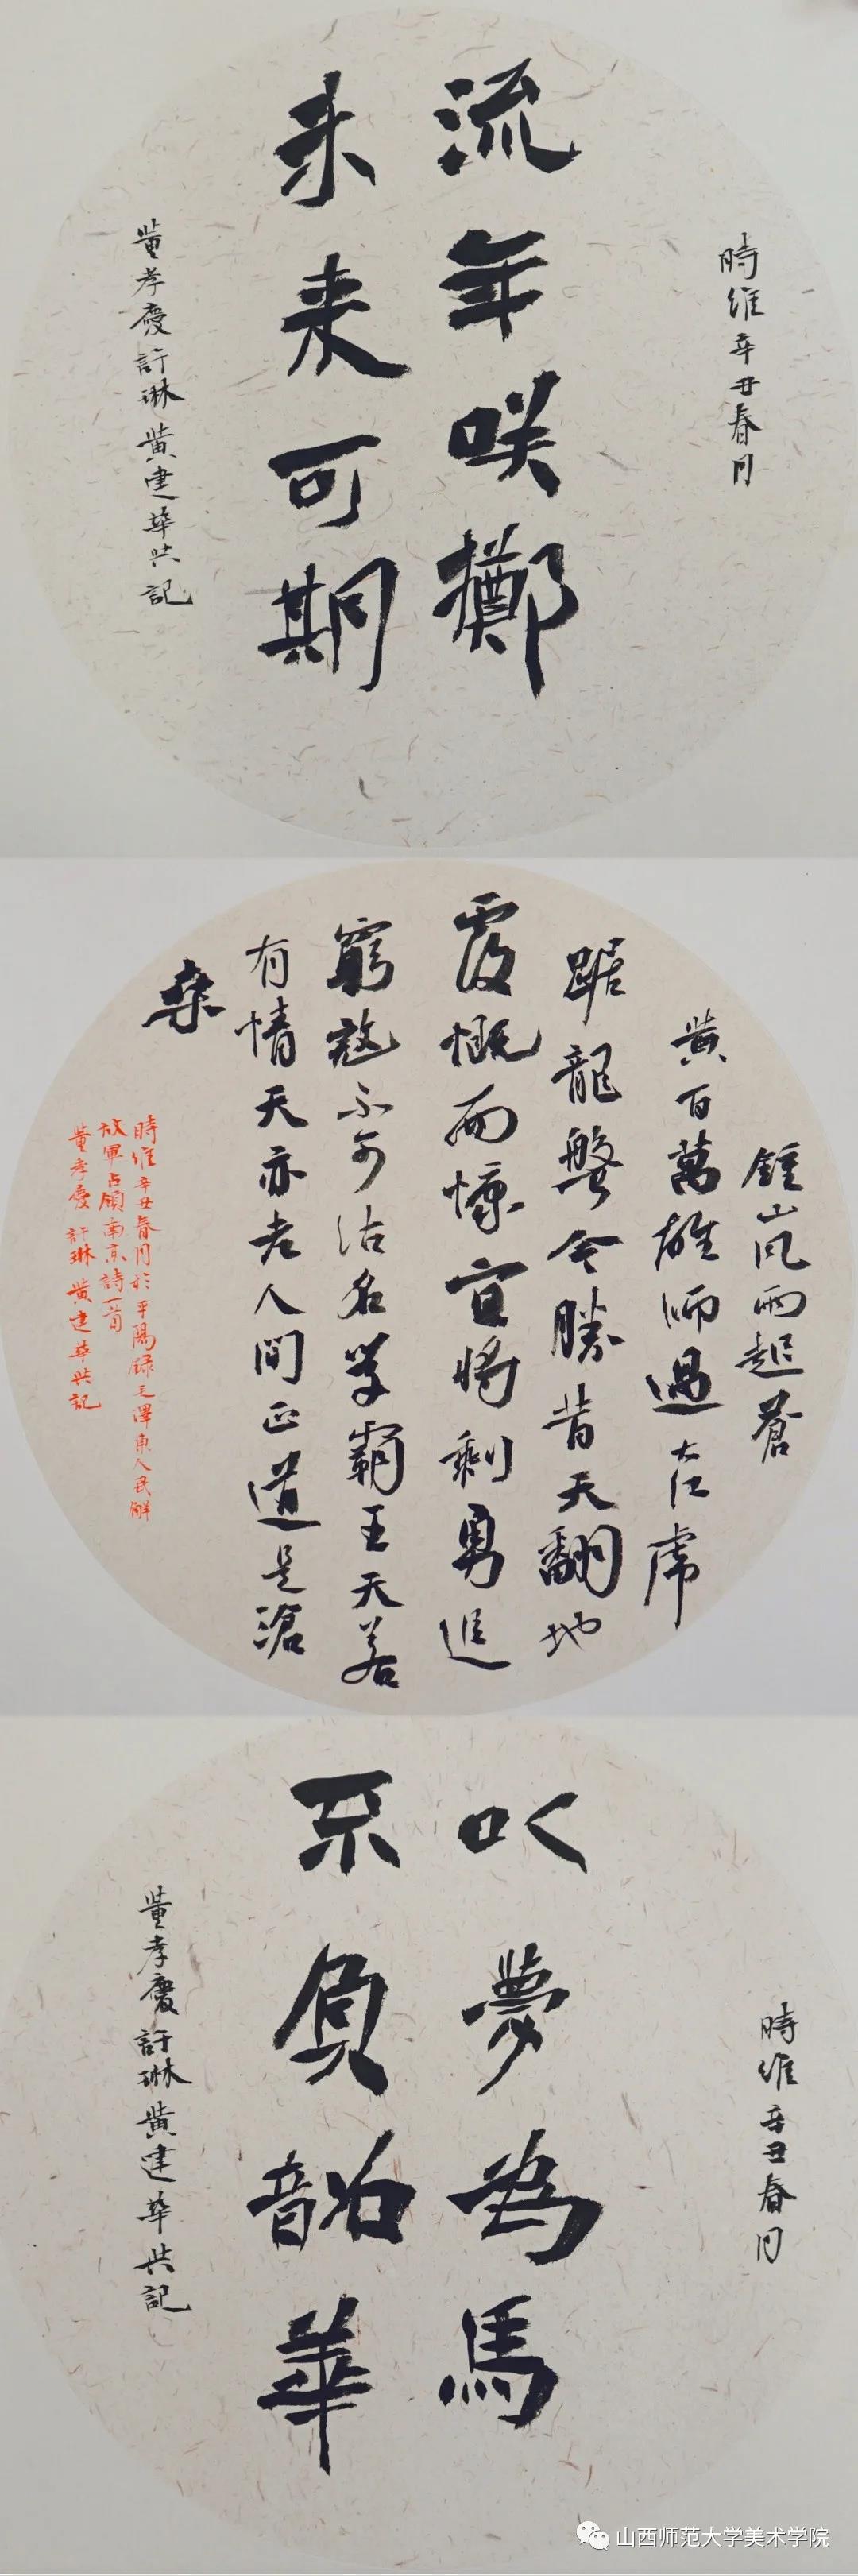 時維辛丑春月
流年咲擲
未来可期
董孝慶許琳黄建華共記
鍾山风雨起蒼
黄百萬雄师過大江虎
踞龍盤今勝昔天翻地
覆慨而慷宜將剩勇追
窮寇不可沽名学霸王天若
有情天亦老人間正道是滄
桑
時維辛丑春月於平陽録毛澤東人民解
放軍占領南京詩一首
董孝慶許琳黄建華共記
時維辛丑春月
以夢為馬
不負韶華
董孝慶許琳黄建華共記
山西师范大学美术学院